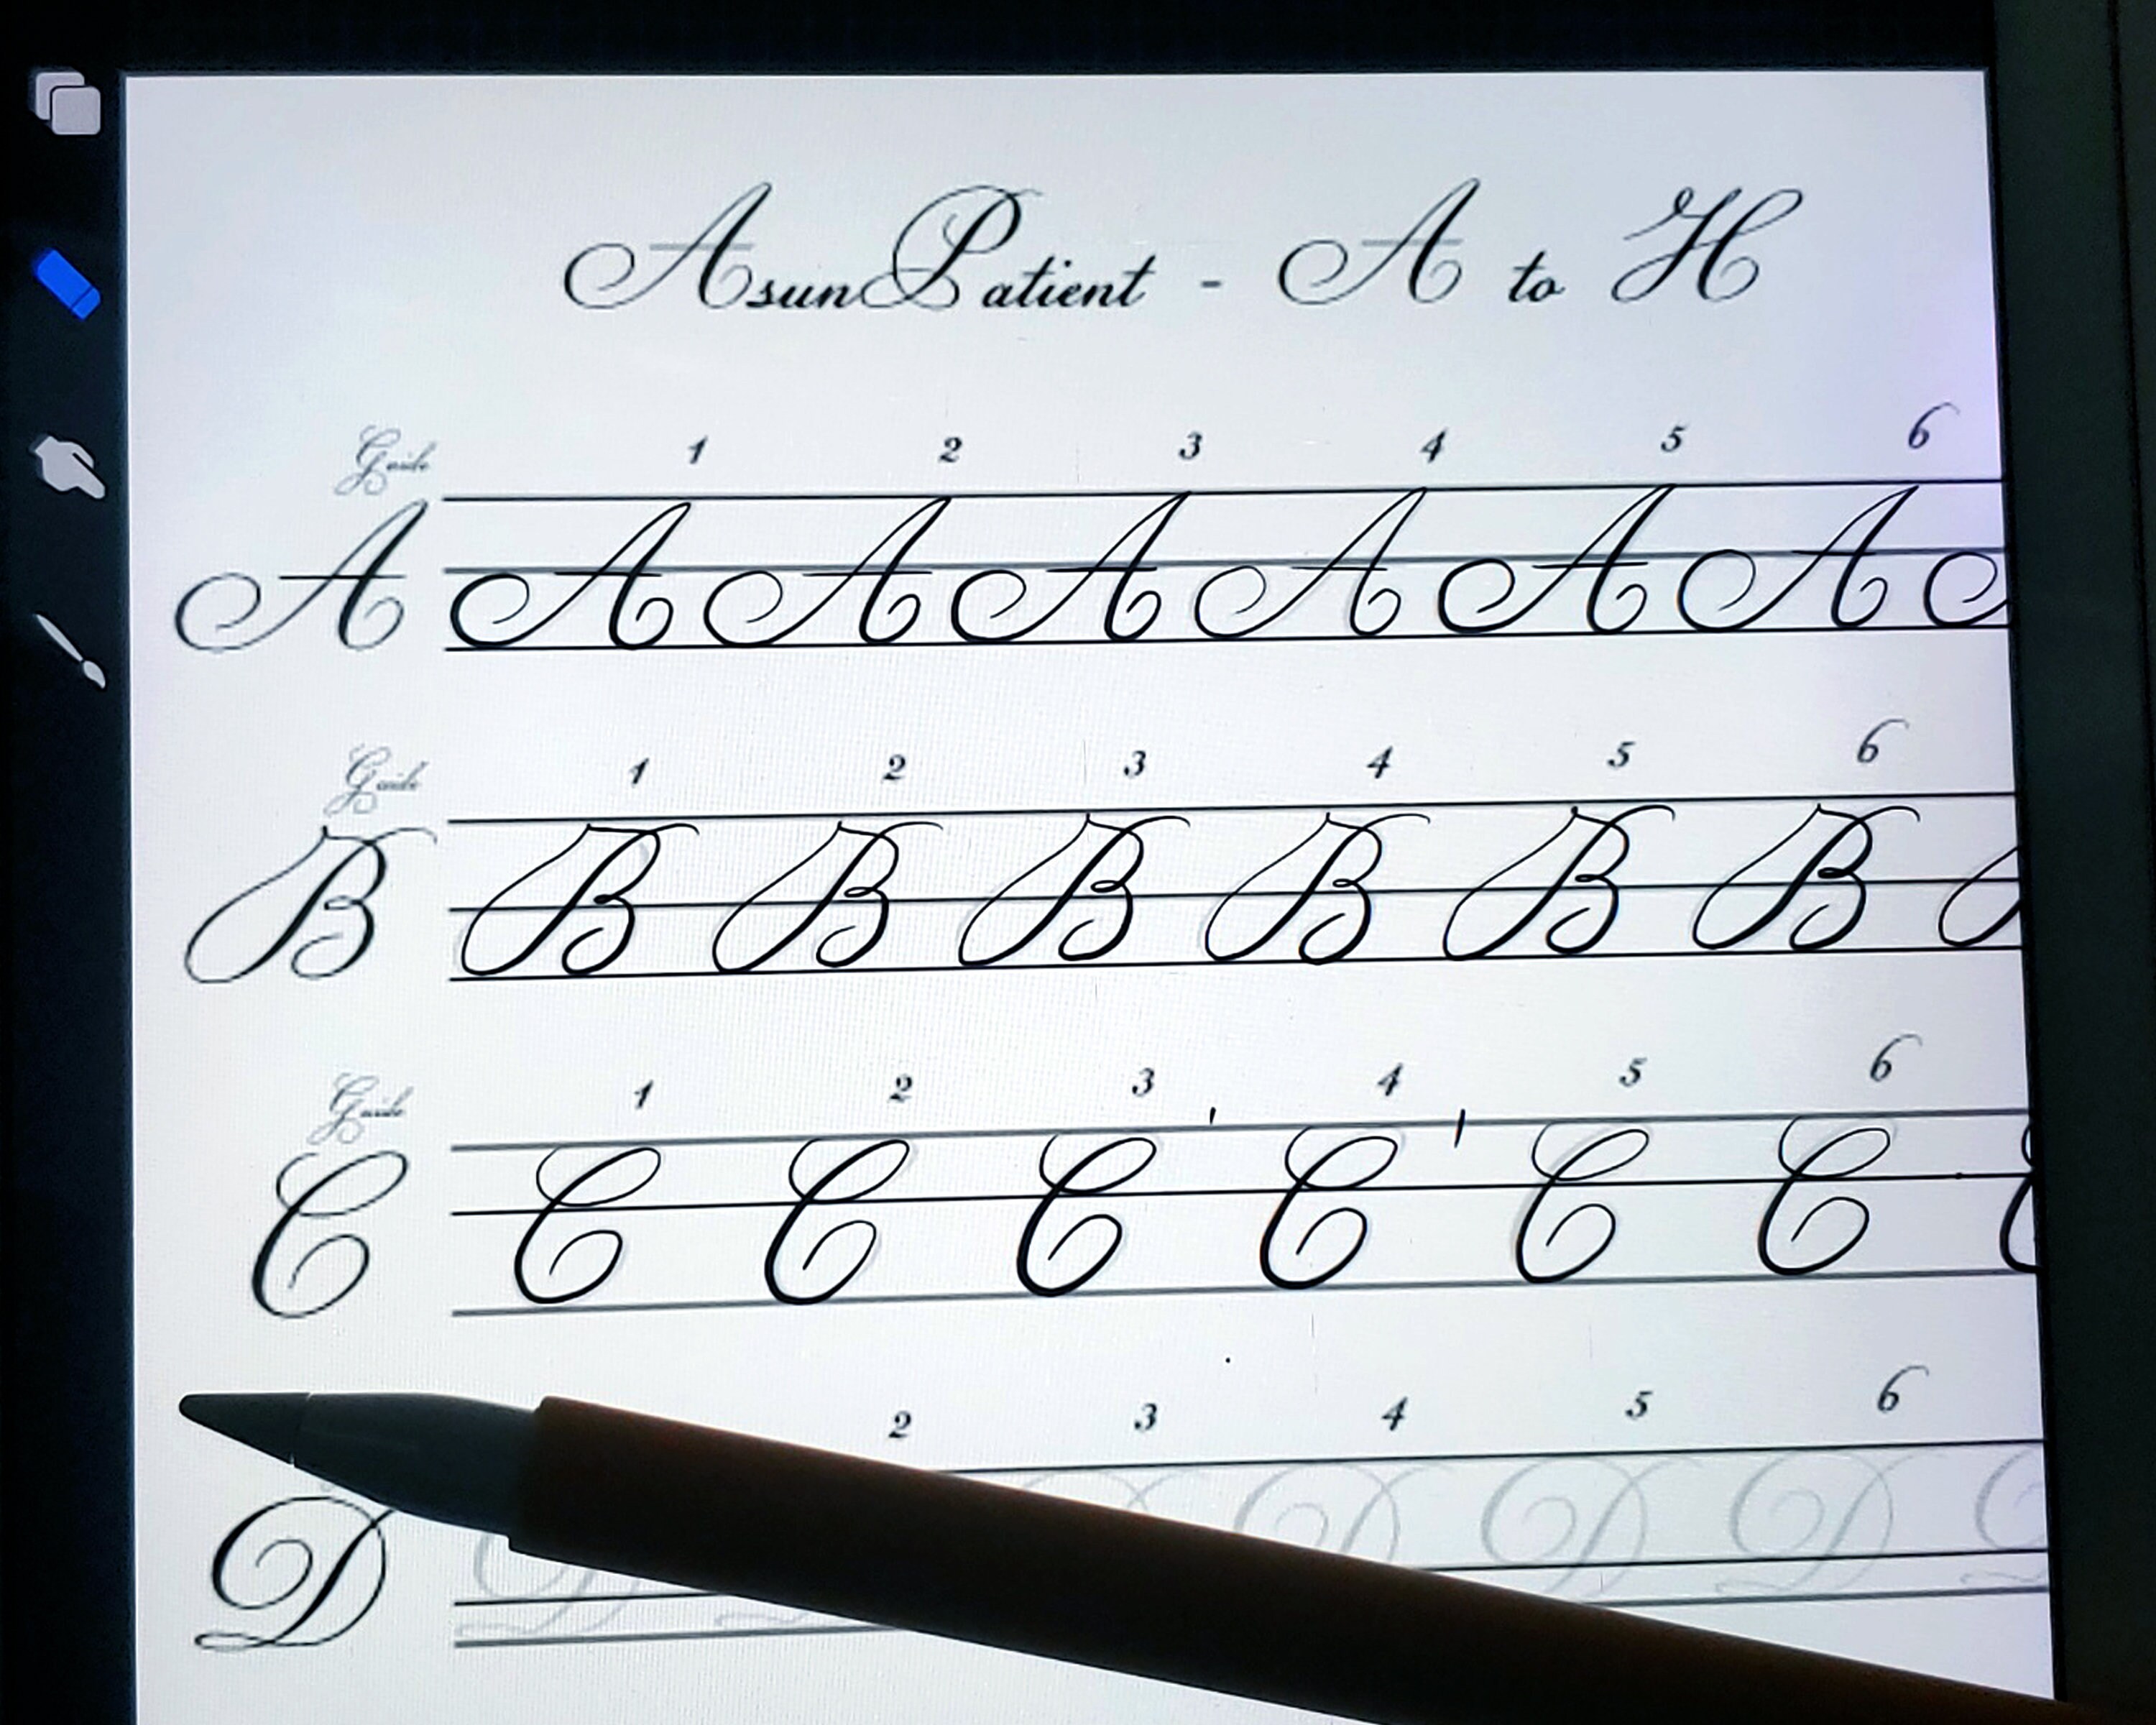 AsunPatient - A to H
Guide 1 2 3 4 5 6
A A A A A A A
Guide 1 2 3 4 5 6
B B B B B B B
Guide 1 2 3 4 5 6
C C C C C C C C
2 3 4 5 6
D D D D D D